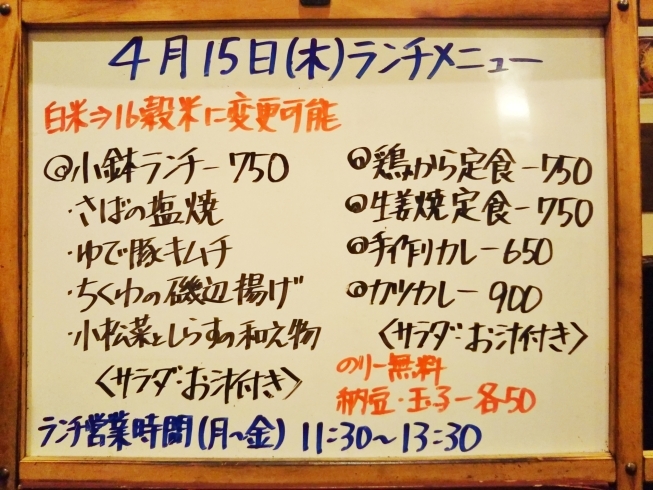 4月15日(木)ランチメニュー
白米⇒16穀米に変更可能
◎小鉢ランチー750
・さばの塩焼
・ゆで豚キムチ
・ちくわの磯辺揚げ
・小松菜としらすの和え物
〈サラダ・お汁付き〉
◎鶏から定食ー750
◎生姜焼定食ー750
◎手作りカレー650
◎カツカレー900
〈サラダ・お汁付き〉
のりー無料
納豆・玉子ー各50
ランチ営業時間(月〜金) 11:30〜13:30